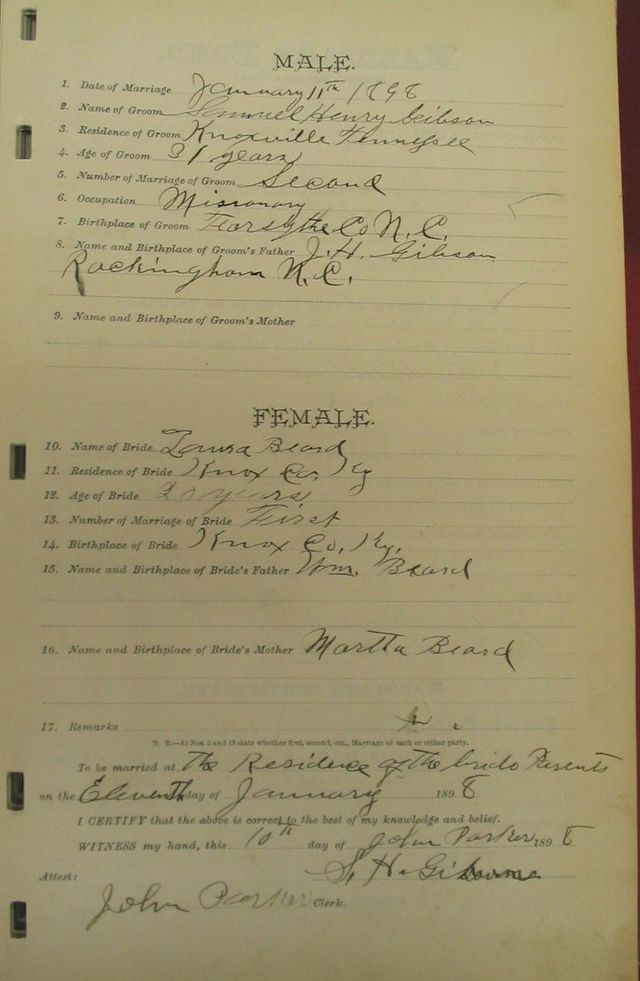 MALE.
1. Date of Marriage January 11th 1898
2. Name of Groom Samuel Henry Gibson
3. Residence of Groom Knoxville Tennessee
4. Age of Groom 31 years
5. Number of Marriage of Groom Second
6. Occupation Missionary
7. Birthplace of Groom Forsythe Co N.C.
8. Name and Birthplace of Groom's Father J. H. Gibson
Rockingham N.C.
9. Name and Birthplace of Groom's Mother
FEMALE.
10. Name of Bride Laura Beard
11. Residence of Bride Knox Co. Ky
12. Age of Bride 20 years
13. Number of Marriage of Bride First
14. Birthplace of Bride Knox Co, Ky.
15. Name and Birthplace of Bride's Father Wm. Beard
16. Name and Birthplace of Bride's Mother Martha Beard
17. Remarks
N. B.—At Nos 5 and 13 state whether first, second, etc., Marriage of each or either party.
To be married at the Residence of the brids Parents
on the Eleventh day of January 1898
I CERTIFY that the above is correct to the best of my knowledge and belief.
WITNESS my hand, this 10th day of John Parker 1898
S. H. Gibson
Attest:
John Parker Clerk.